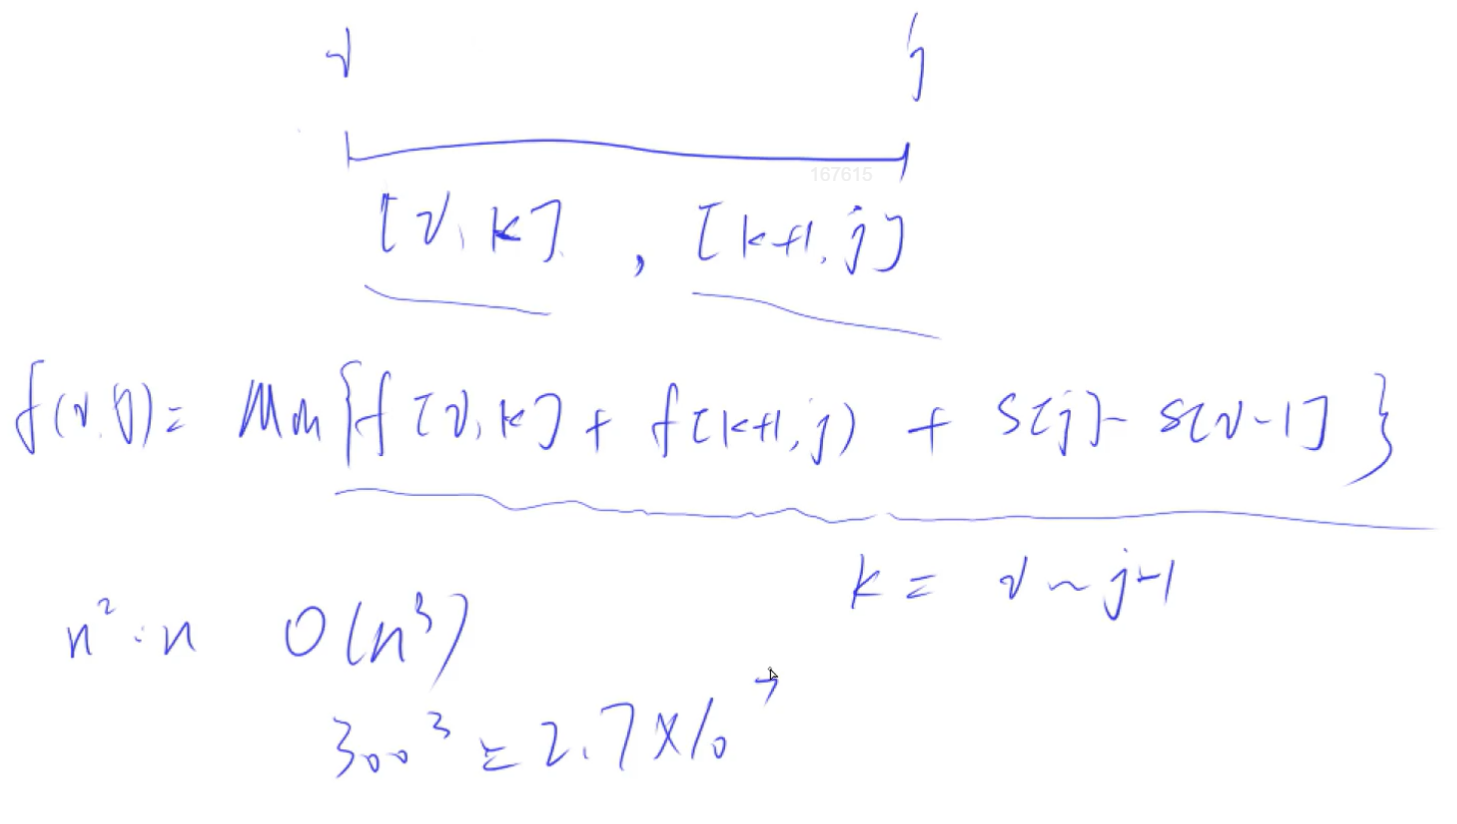 i j
167615
[i, k] , [k+1, j]
f(i, j) = Min{f[i, k] + f[k+1, j) + S[j] - S[i-1]}
k = i ~ j-1
n² · n O(n³)
300³ = 2.7 × 10⁷